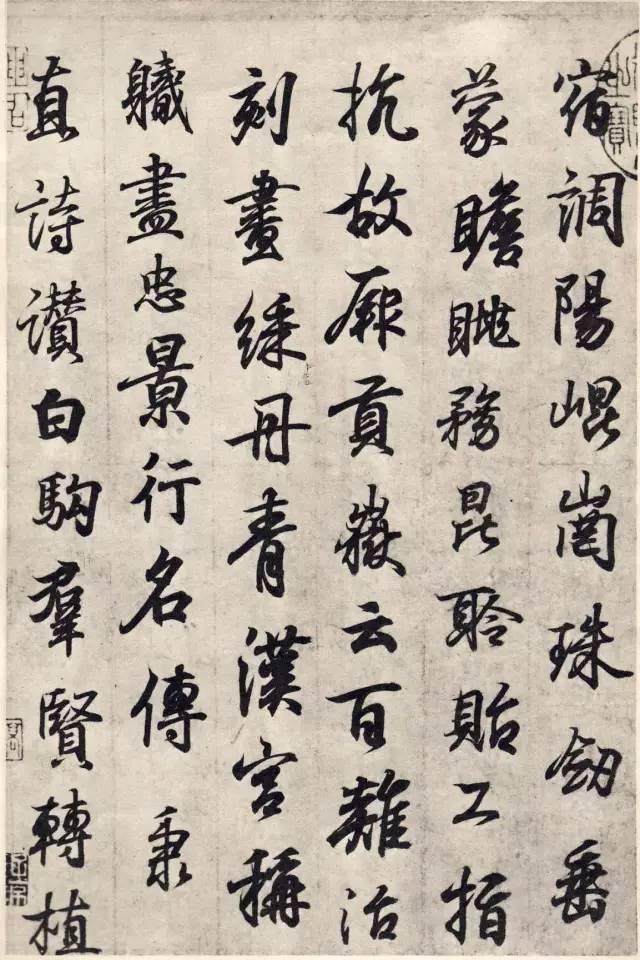 宿調陽崐崗珠釼垂
蒙瞻眺務昆聆貽工指
抗故厥貢嶽云百治
刻畫綵丹青漢宮稱
軄盡忠景行名傳秉
直詩讃白駒羣賢轉植